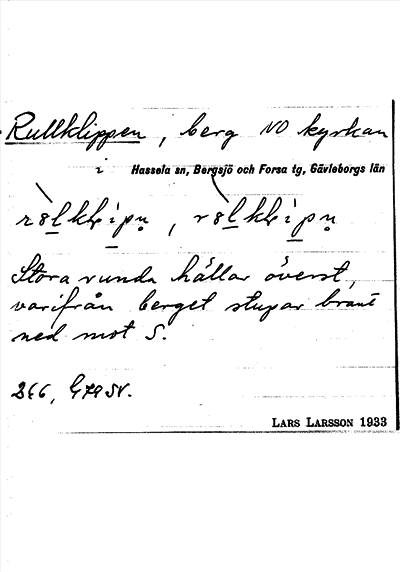 Rullklippen, berg NO kyrkan
i Hassela sn, Bergsjö och Forsa tg, Gävleborgs län
Stora runda hällar överst,
varifrån berget stupar brant
ned mot S.
LARS LARSSON 1933